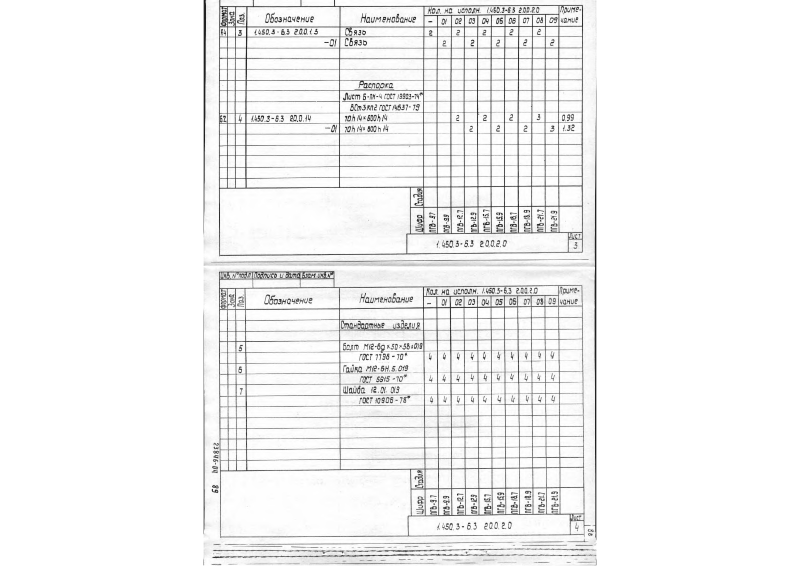 Формат Зона Поз. Обозначение Наименование Кол. на исполн. 1.450.3-6.3 2.0.0.2.0 Приме-
чание
— 01 02 03 04 05 06 07 08 09
3 1.450.3-6.3 2.0.0.1.3 Связь 2 2 2 2 2
—01 Связь 2 2 2 2 2
Распорка
Лист Б-ПН-4 ГОСТ 19903-74*
ВСт3кп2 ГОСТ 14637-79
БЧ 4 1.450.3-6.3 2.0.0.14 70h14×600h14 2 2 2 3 0,99
—01 70h14×800h14 2 2 2 3 1.32
Стадия
Шифр ПГВ-9.7 ПГВ-9.9 ПГВ-12.7 ПГВ-12.9 ПГВ-15.7 ПГВ-15.9 ПГВ-18.7 ПГВ-18.9 ПГВ-21.7 ПГВ-21.9
1.450.3-6.3 2.0.0.2.0 Лист
3
Инв. № подл. Подпись и дата Взам. инв. №
Формат Зона Поз. Обозначение Наименование Кол. на исполн. 1.450.3-6.3 2.0.0.2.0 Приме-
чание
— 01 02 03 04 05 06 07 08 09
Стандартные изделия
5 Болт М12-6g×30×58×019
ГОСТ 7798-70* 4 4 4 4 4 4 4 4 4 4
6 Гайка М12-6Н.5.019
ГОСТ 5915-70* 4 4 4 4 4 4 4 4 4 4
7 Шайба 12.01.019
ГОСТ 10906-78* 4 4 4 4 4 4 4 4 4 4
23846-04 68
Стадия
Шифр ПГВ-9.7 ПГВ-9.9 ПГВ-12.7 ПГВ-12.9 ПГВ-15.7 ПГВ-15.9 ПГВ-18.7 ПГВ-18.9 ПГВ-21.7 ПГВ-21.9
1.450.3-6.3 2.0.0.2.0 Лист
4